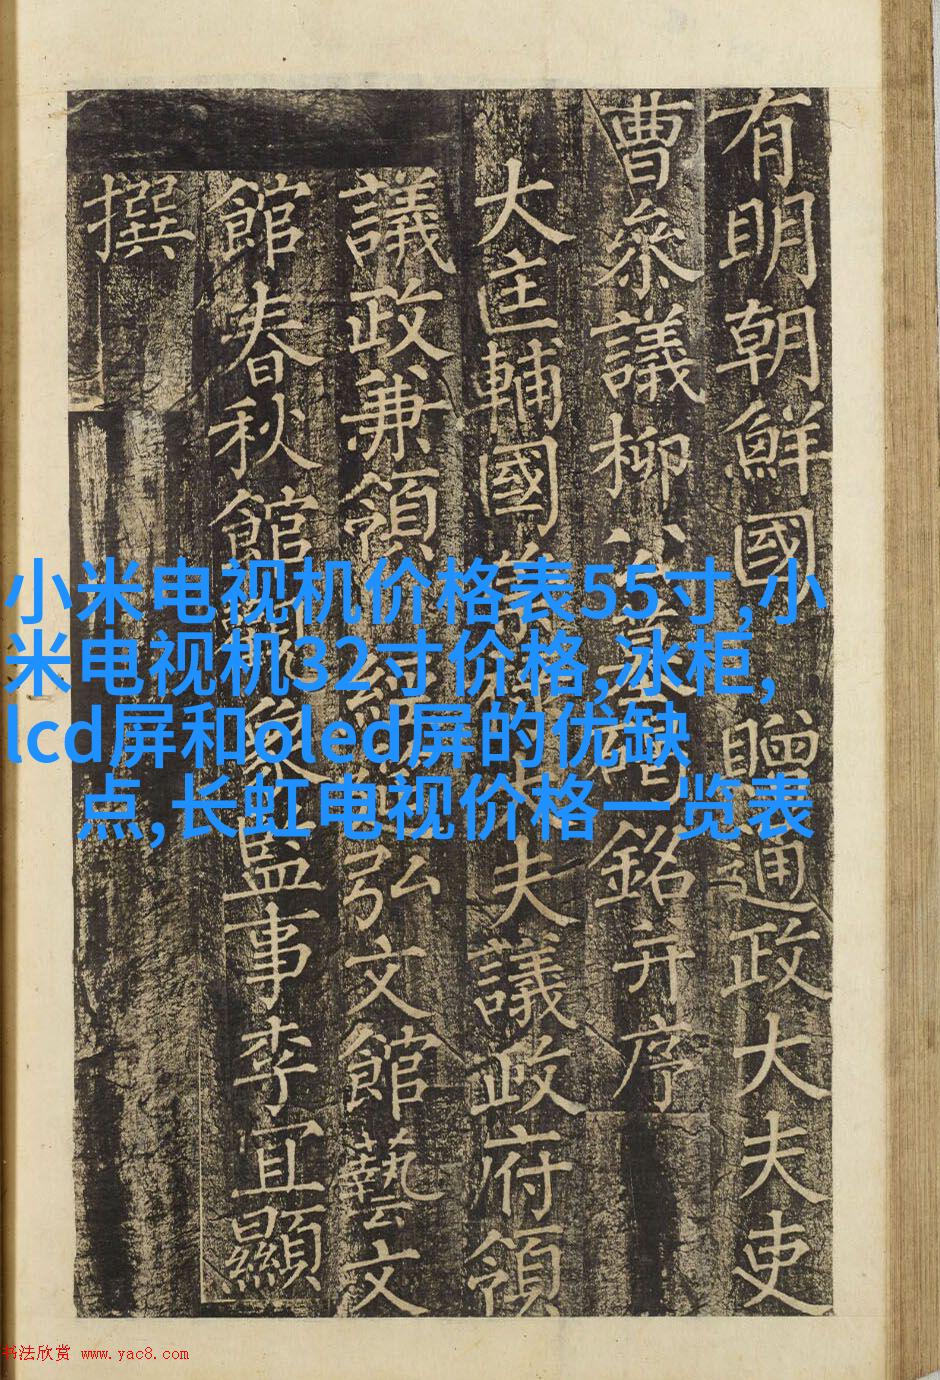 有明朝鮮國贈通政大夫吏
曹叅議柳公墓碣銘并序
大匡輔國崇祿大夫議政府領
議政兼領經筵弘文館藝文
館春秋館觀象監事李宜顯
撰
小米电视机价格表55寸,小
米电视机32寸价格,冰柜,
lcd屏和oled屏的优缺
点,长虹电视价格一览表
书法欣赏 www.yac8.com